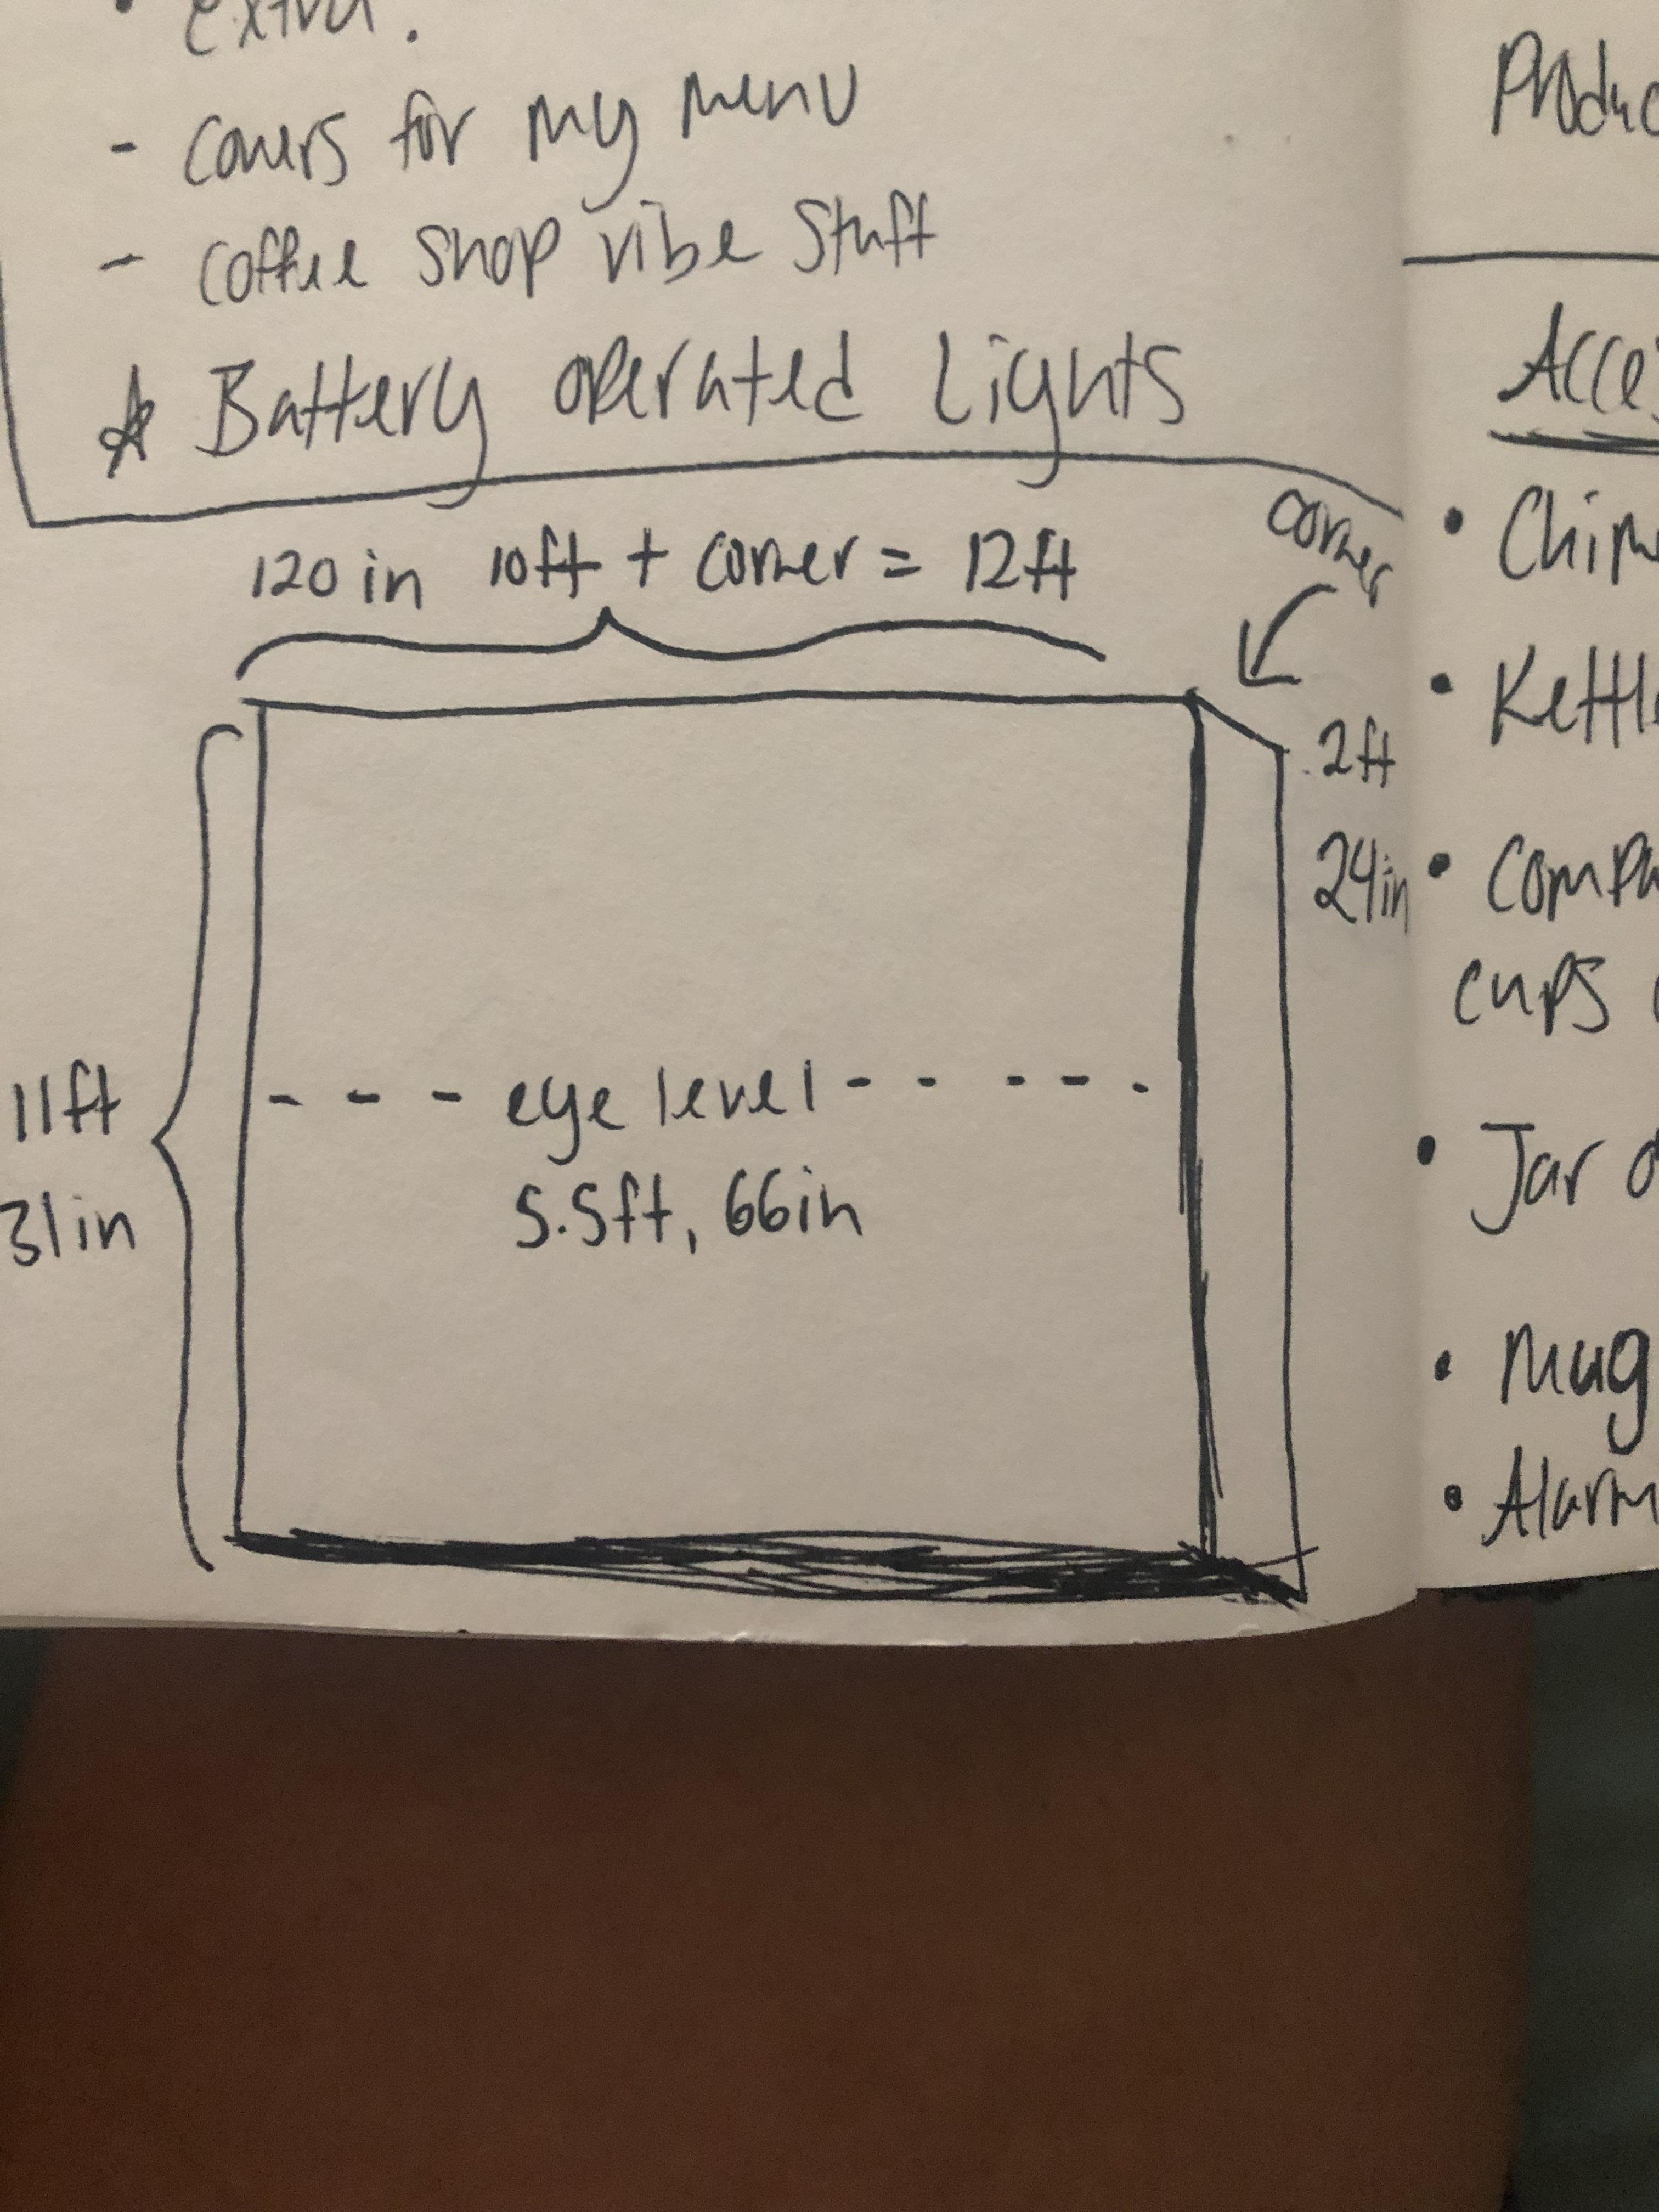 extra.
- covers for my menu
- coffee shop vibe stuff
☆ Battery operated Lights
120 in 10ft + corner = 12ft
corner
2ft
24in
11ft
31in
- - - eye level - - - - -
5.5ft, 66in
Produc
Acce
• Chim
• Kettle
• Compa
cups
• Jar
• Mug
• Alarm